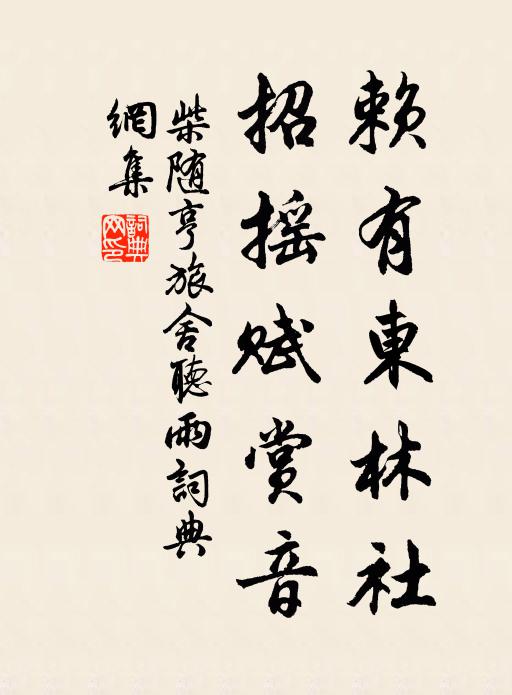 賴有東林社
招摇赋賞音
柴随亨旅舍聽雨詞典
網集
詞典
网印